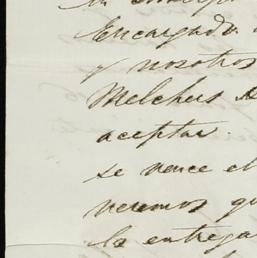 Encargado
y nosotros
Melchers
aceptar.
se vence el
veremos qu
la entrega